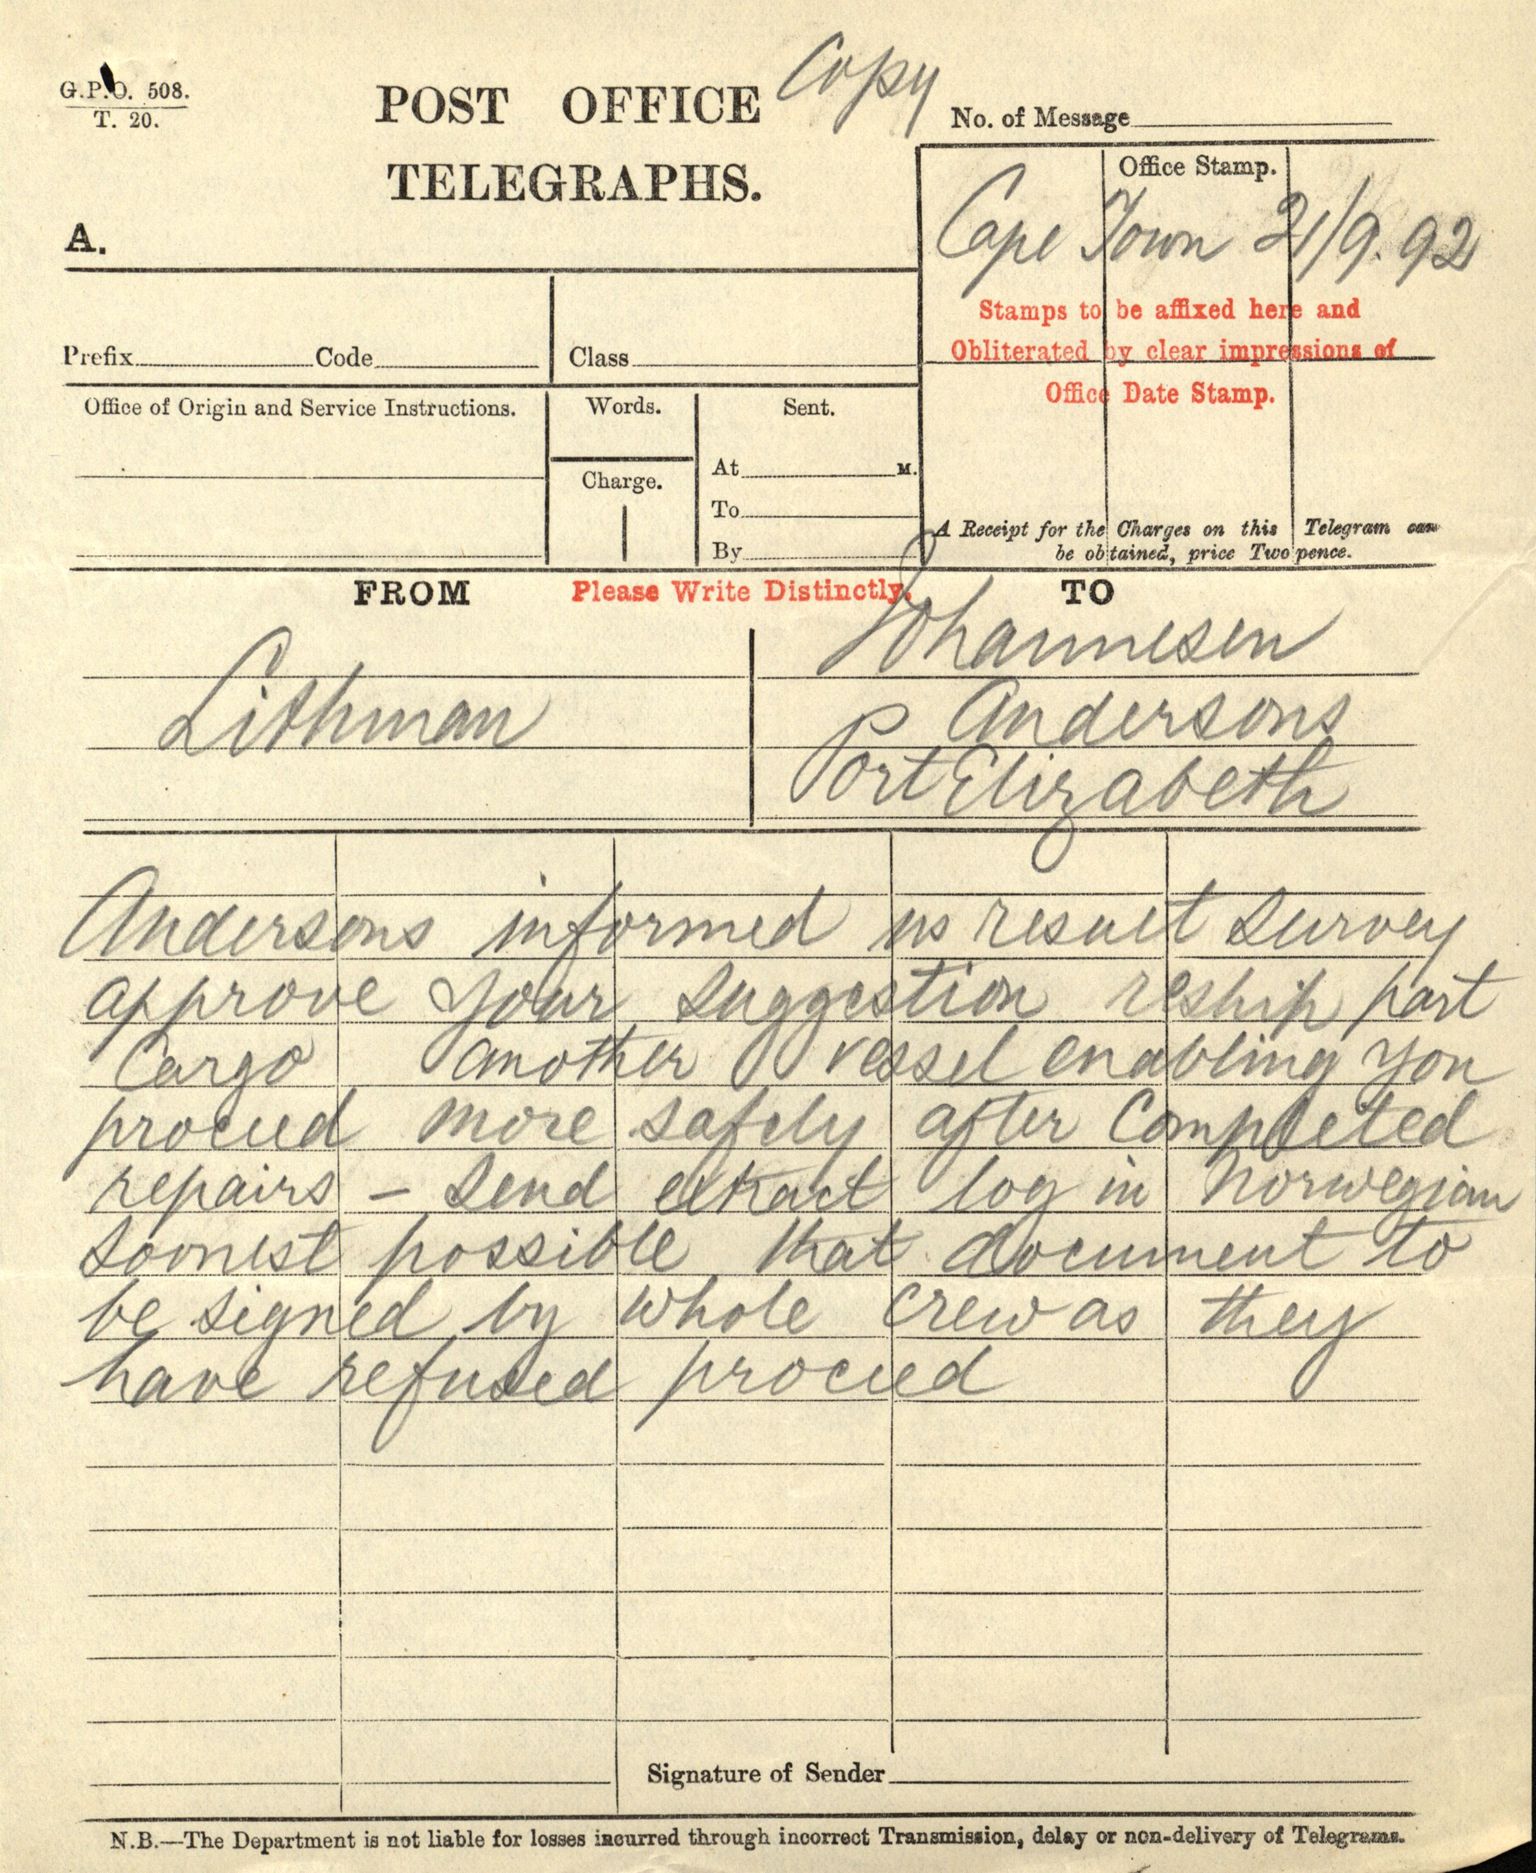 Copy
G.P.O. 508.
T. 20.
POST OFFICE
TELEGRAPHS.
No. of Message
A.
Office Stamp.
Cape Town 21/9. 92
Stamps to be affixed here and
Obliterated by clear impressions of
Office Date Stamp.
Prefix Code
Class
Office of Origin and Service Instructions.
Words.
Charge.
Sent.
At M.
To
By
A Receipt for the Charges on this Telegram can
be obtained, price Twopence.
FROM
Please Write Distinctly.
TO
Lithman
Johannesen
Andersons
Port Elizabeth
Andersons informed us result survey
approve your suggestion reship part
Cargo another vessel enabling you
proceed more safely after Completed
repairs – Send extract log in Norwegian
soonest possible that document to
be signed by whole crew as they
have refused proceed
Signature of Sender
N.B.—The Department is not liable for losses incurred through incorrect Transmission, delay or non-delivery of Telegrams.